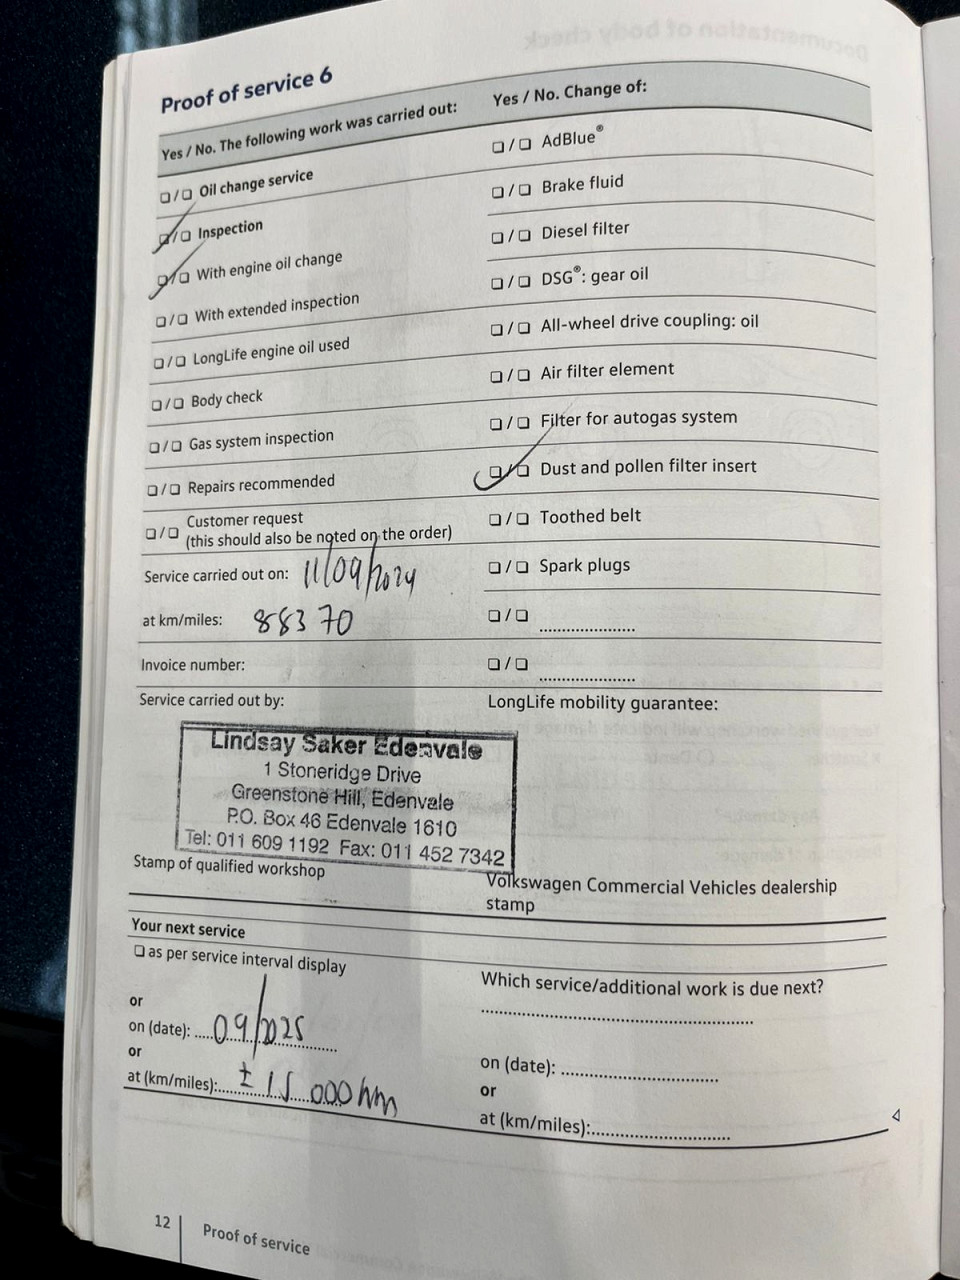 Proof of service 6
Yes / No. The following work was carried out:
☐ / ☐ Oil change service
☑ / ☐ Inspection
☑ / ☐ With engine oil change
☐ / ☐ With extended inspection
☐ / ☐ LongLife engine oil used
☐ / ☐ Body check
☐ / ☐ Gas system inspection
☐ / ☐ Repairs recommended
☐ / ☐ Customer request
(this should also be noted on the order)
Service carried out on: 11/09/2024
at km/miles: 88370
Invoice number:
Service carried out by:
Lindsay Saker Edenvale
1 Stoneridge Drive
Greenstone Hill, Edenvale
P.O. Box 46 Edenvale 1610
Tel: 011 609 1192 Fax: 011 452 7342
Stamp of qualified workshop
Yes / No. Change of:
☐ / ☐ AdBlue®
☐ / ☐ Brake fluid
☐ / ☐ Diesel filter
☐ / ☐ DSG®: gear oil
☐ / ☐ All-wheel drive coupling: oil
☐ / ☐ Air filter element
☐ / ☐ Filter for autogas system
☑ / ☐ Dust and pollen filter insert
☐ / ☐ Toothed belt
☐ / ☐ Spark plugs
☐ / ☐ ....................
☐ / ☐ ....................
LongLife mobility guarantee:
Volkswagen Commercial Vehicles dealership
stamp
Your next service
☐ as per service interval display
or
on (date): 09/2025
or
at (km/miles): ± 15 000 km
Which service/additional work is due next?
on (date):
or
at (km/miles):
12 Proof of service